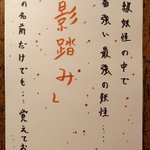 線妖怪の中で
番強い最強の妖怪
影踏み」
の名前だけでも…覚えてお